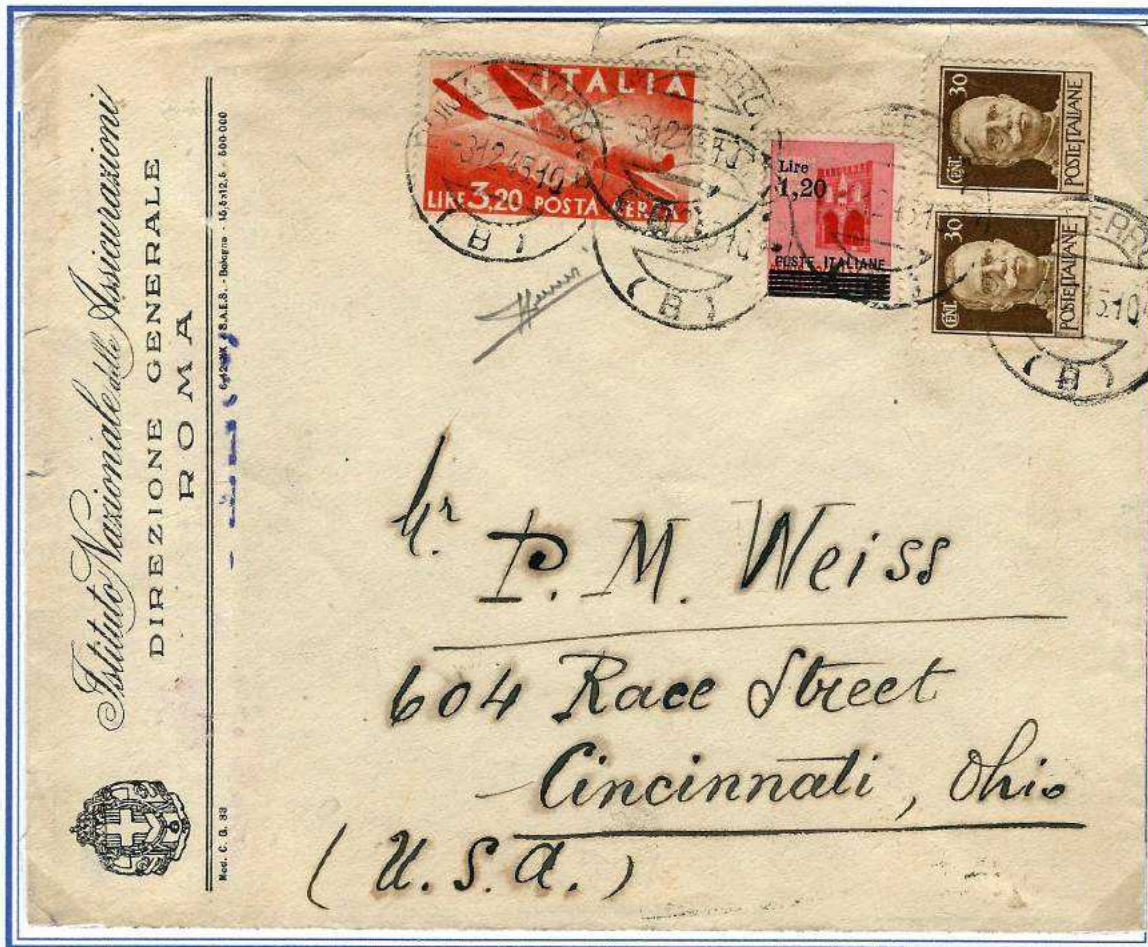 Istituto Nazionale delle Assicurazioni
DIREZIONE GENERALE
ROMA
Mod. C. G. 33
S.A.E.S. - Bologna - 15,5×12,5 - 500.000
ITALIA
LIRE 3,20 POSTA AEREA
-3.12.45.10
(B)
Lire
1,20
POSTE ITALIANE
(B)
30
CENT.
POSTE ITALIANE
30
CENT.
POSTE ITALIANE
(B)
P. M. Weiss
604 Race Street
Cincinnati, Ohio
(U.S.A.)